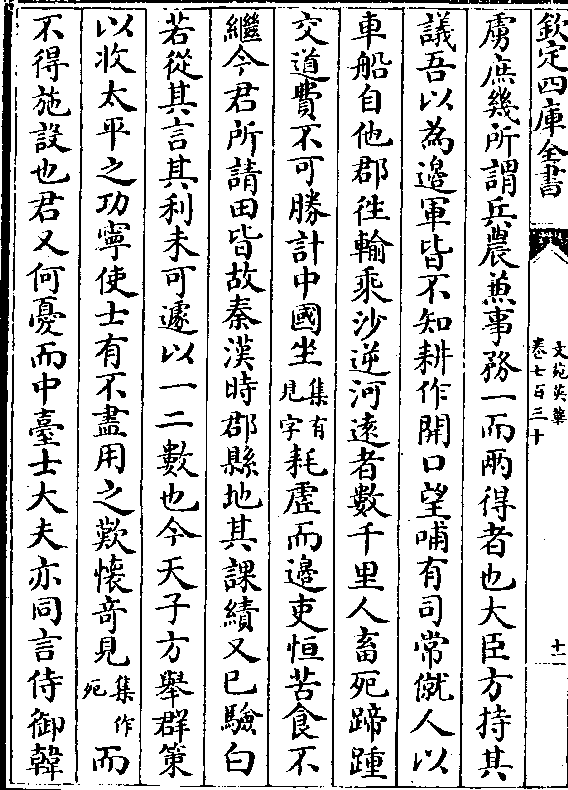 欽定四庫全書
文苑英華
卷七百三十
十一
虜庶幾所謂兵農兼事務一而兩得者也大臣方持其
議吾以為邉軍皆不知耕作開口望哺有司常僦人以
車船自他郡往輸乘沙逆河逺者數千里人畜死蹄踵
交道費不可勝計中國坐集有見字耗虛而邉吏恒苦食不
繼今君所請田皆故秦漢時郡縣地其課績又已驗白
若從其言其利未可遽以一二數也今天子方舉群策
以收太平之功寧使士有不盡用之歎懐竒見集作死而
不得施設也君又何憂而中臺士大夫亦同言侍御韓